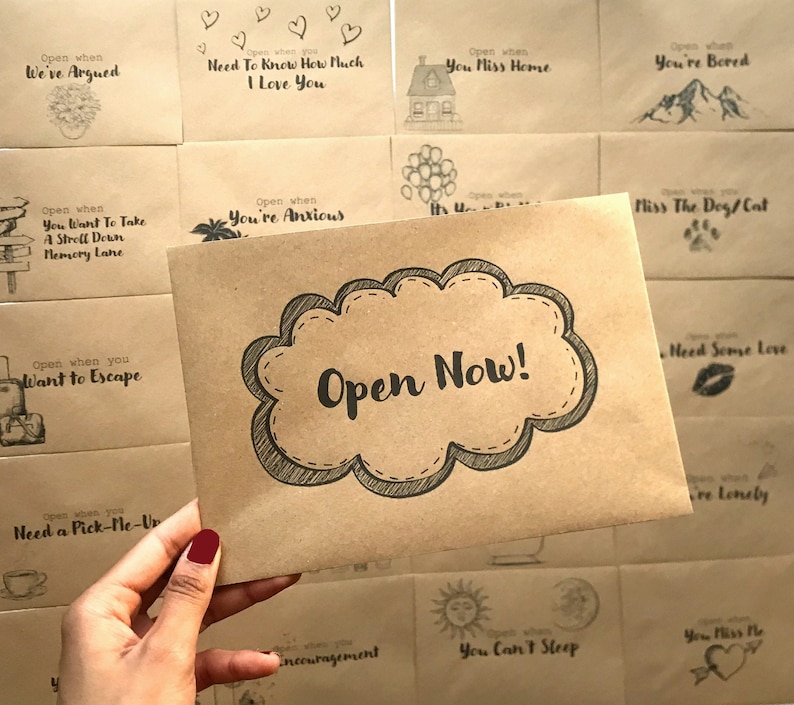 Open when
We've Argued
Open when you
Need To Know How Much
I Love You
Open when
You Miss Home
Open when
You're Bored
Open when
You Want To Take
A Stroll Down
Memory Lane
Open when
You're Anxious
Open when
It's Your
Open when you
Miss The Dog/Cat
Open Now!
Open when you
Want to Escape
Open when
Need Some Love
Open when you
Need a Pick-Me-Up
Lonely
Open when you
Encouragement
Open when
You Can't Sleep
Open when
You Miss Me